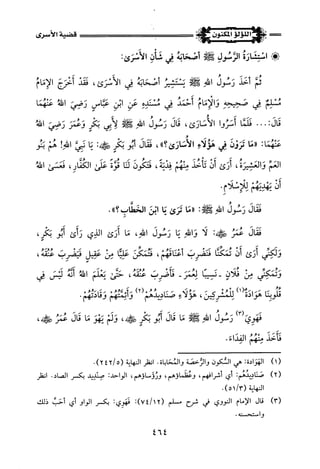 اللؤلؤ المكنون
قضية الأسرى
* اسْتِشَارَةُ الرَّسُولِ ﷺ أَصْحَابَهُ فِي شَأْنِ الْأَسْرَى:
ثُمَّ أَخَذَ رَسُولُ اللهِ ﷺ يَسْتَشِيرُ أَصْحَابَهُ فِي الْأَسْرَى، فَقَدْ أَخْرَجَ الْإِمَامُ
مُسْلِمٌ فِي صَحِيحِهِ وَالْإِمَامُ أَحْمَدُ فِي مُسْنَدِهِ عَنِ ابْنِ عَبَّاسٍ رَضِيَ اللهُ عَنْهُمَا
قَالَ: ... فَلَمَّا أَسَرُوا الْأُسَارَى، قَالَ رَسُولُ اللهِ ﷺ لِأَبِي بَكْرٍ وَعُمَرَ رَضِيَ اللهُ
عَنْهُمَا: «مَا تَرَوْنَ فِي هَؤُلَاءِ الْأُسَارَى؟»، فَقَالَ أَبُو بَكْرٍ ﷺ: يَا نَبِيَّ اللهِ! هُمْ بَنُو
الْعَمِّ وَالْعَشِيرَةُ، أَرَى أَنْ تَأْخُذَ مِنْهُمْ فِدْيَةً، فَتَكُونَ لَنَا قُوَّةً عَلَى الْكُفَّارِ، فَعَسَى اللهُ
أَنْ يَهْدِيَهُمْ لِلْإِسْلَامِ.
فَقَالَ رَسُولُ اللهِ ﷺ: «مَا تَرَى يَا ابْنَ الْخَطَّابِ؟».
فَقَالَ عُمَرُ: لَا وَاللهِ يَا رَسُولَ اللهِ، مَا أَرَى الَّذِي رَأَى أَبُو بَكْرٍ،
وَلَكِنِّي أَرَى أَنْ تُمَكِّنَّا فَنَضْرِبَ أَعْنَاقَهُمْ، فَتُمَكِّنَ عَلِيًّا مِنْ عَقِيلٍ فَيَضْرِبَ عُنُقَهُ،
وَتُمَكِّنِّي مِنْ فُلَانٍ - نَسِيبًا لِعُمَرَ - فَأَضْرِبَ عُنُقَهُ، حَتَّى يَعْلَمَ اللهُ أَنَّهُ لَيْسَ فِي
قُلُوبِنَا هَوَادَةٌ(١) لِلْمُشْرِكِينَ، هَؤُلَاءِ صَنَادِيدُهُمْ(٢) وَأَئِمَّتُهُمْ وَقَادَتُهُمْ.
فَهَوِيَ(٣) رَسُولُ اللهِ ﷺ مَا قَالَ أَبُو بَكْرٍ، وَلَمْ يَهْوَ مَا قَالَ عُمَرُ،
فَأَخَذَ مِنْهُمُ الْفِدَاءَ.
(١) الهَوَادَة: هي السُّكون والرُّخصة والمُحَاباة. انظر النهاية (٢٤٢/٥).
(٢) صَنَادِيدُهُم: أي أشرافهم، وعُظَماؤهم، ورُؤساؤهم، الواحد: صِنْدِيد بكسر الصاد. انظر
النهاية (٥١/٣).
(٣) قال الإمام النووي في شرح مسلم (٧٤/١٢): فَهَوِيَ: بكسر الواو أي أحَبَّ ذلك
واستحسنه.
٤٦٤